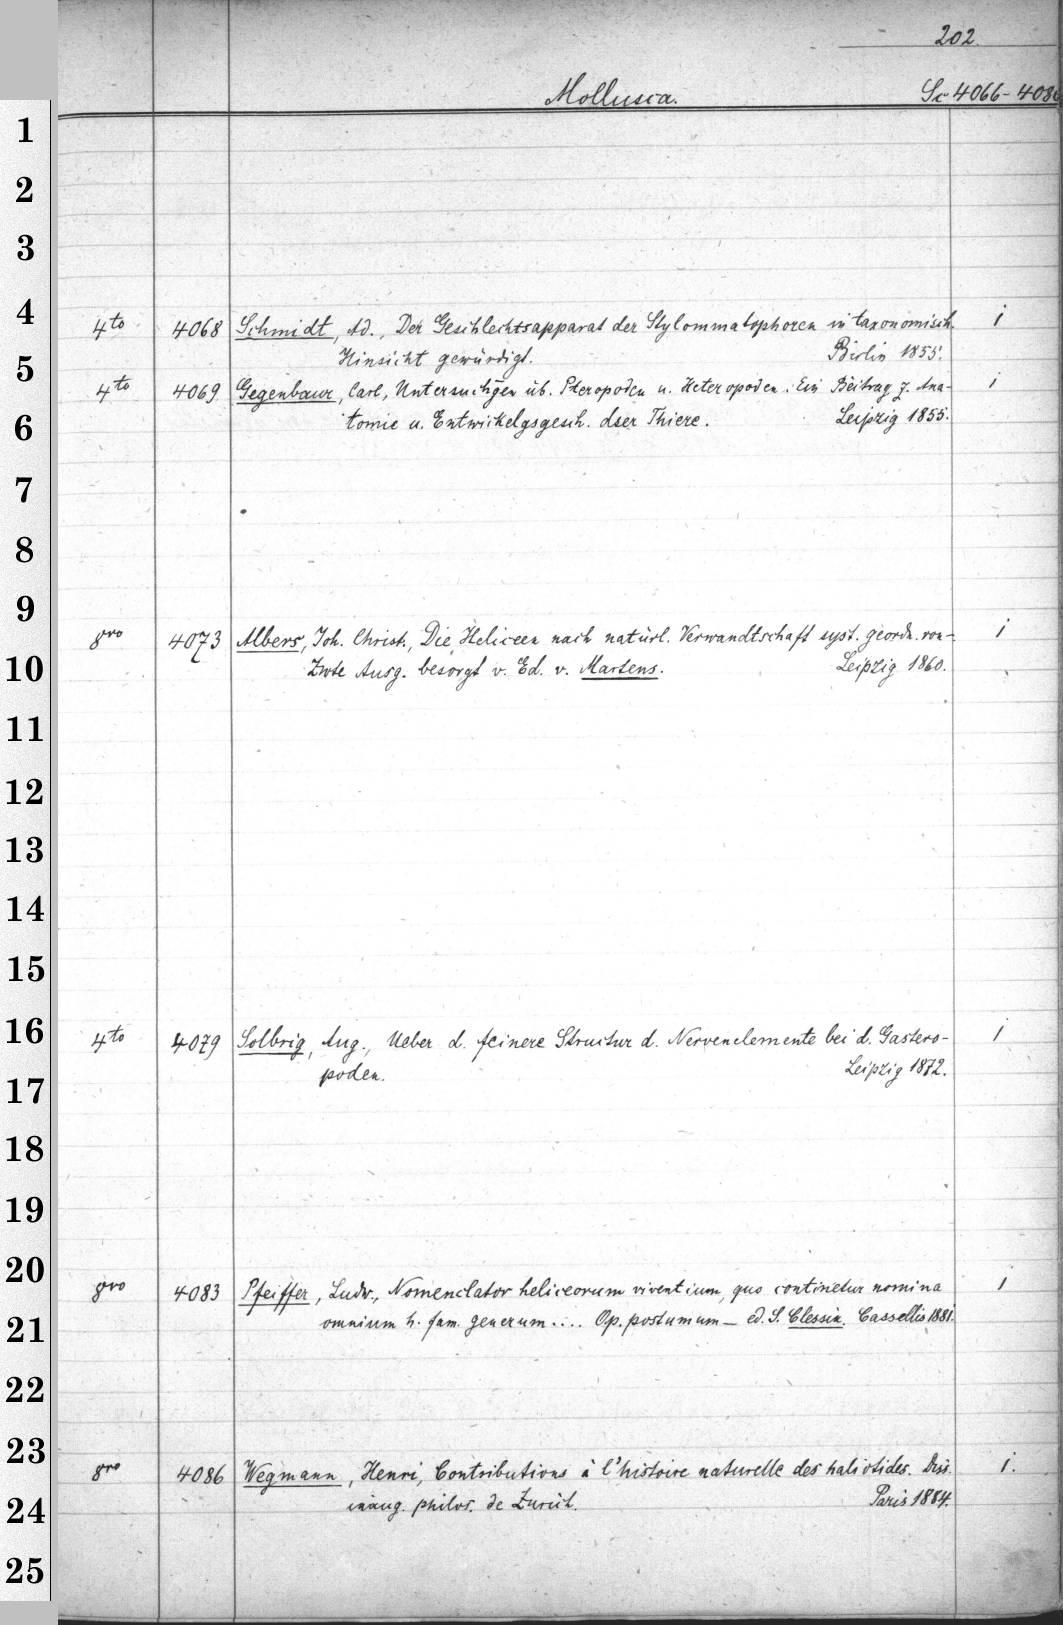 202.
Mollusca. Sc 4066-4086
1
2
3
4
4to 4068 Schmidt, Ad., Der Geschlechtsapparat der Stylommatophoren in taxonomisch. 1
Hinsicht gewürdigt. Berlin 1855.
5
4to 4069 Gegenbaur, Carl, Untersuchgen üb. Pteropoden u. Heteropoden. Ein Beitrag z. Ana- 1
6 tomie u. Entwickelgsgesch. dser Thiere. Leipzig 1855.
7
8
9
8vo 4073 Albers, Joh. Christ., Die Heliceen nach natürl. Verwandtschaft syst. geordn. von- 1
10 Zwte Ausg. besorgt v. Ed. v. Martens. Leipzig 1860.
11
12
13
14
15
16 4to 4079 Solbrig, Aug., Ueber d. feinere Structur d. Nervenelemente bei d. Gastero- 1
poden. Leipzig 1872.
17
18
19
20
8vo 4083 Pfeiffer, Ludw., Nomenclator heliceorum viventium, quo continetur nomina 1
21 omnium h. fam. generum .... Op. postumum - ed. S. Clessin. Cassellis 1881.
22
23
8vo 4086 Wegmann, Henri, Contributions à l'histoire naturelle des haliotides. Diss. 1.
24 inaug. philos. de Zurich. Paris 1884.
25